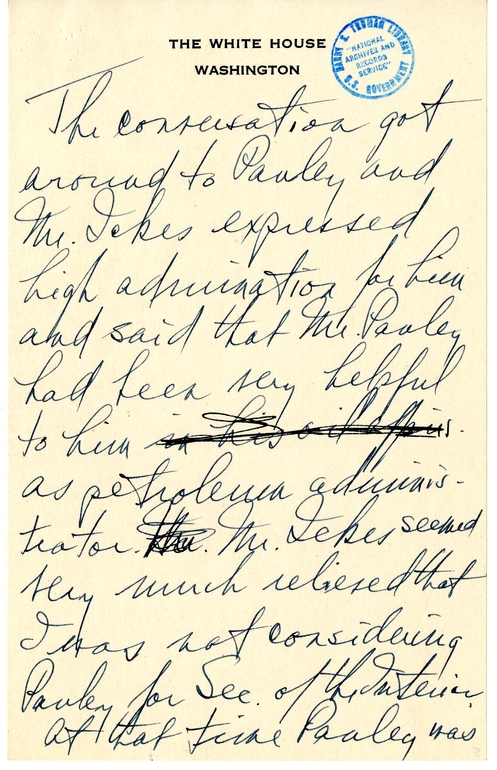 THE WHITE HOUSE
WASHINGTON
HARRY S. TRUMAN LIBRARY
"NATIONAL
ARCHIVES AND
RECORDS
SERVICE"
U.S. GOVERNMENT
The conversation got
around to Pauley and
Mr. Ickes expressed
high admiration for him
and said that Mr. Pauley
had been very helpful
to him in his oil affairs.
as petroleum adminis-
trator. Mr. Ickes seemed
very much relieved that
I was not considering
Pauley for Sec. of the Interior
At that time Pauley was